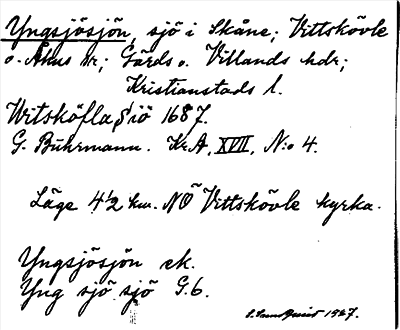 Yngsjösjön, sjö i Skåne; Vittskövle
o. Åhus sr; Gärds o. Villands hdr;
Kristianstads l.
Witsköfla Siö 1687.
G. Buhrmann. Kr.A, XVII, N:o 4.
Läge 4 1/2 km. NO Vittskövle kyrka.
Yngsjösjön ek.
Yng sjö sjö G.6.
1927.